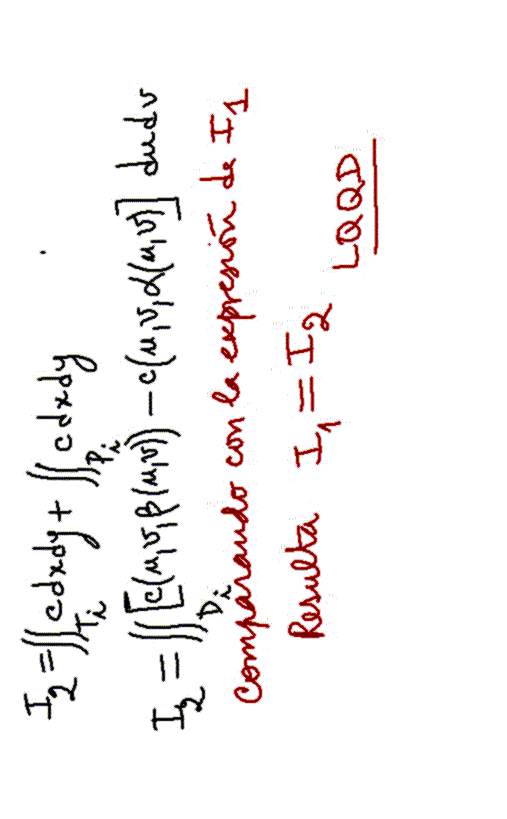 I₂ = ∬_{Tᵢ} c dx dy + ∬_{Pᵢ} c dx dy
I₂ = ∬_{Dᵢ} [c(u,v,β(u,v)) − c(u,v,α(u,v)] du dv
Comparando con la expresión de I₁
Resulta I₁ = I₂ LQQD